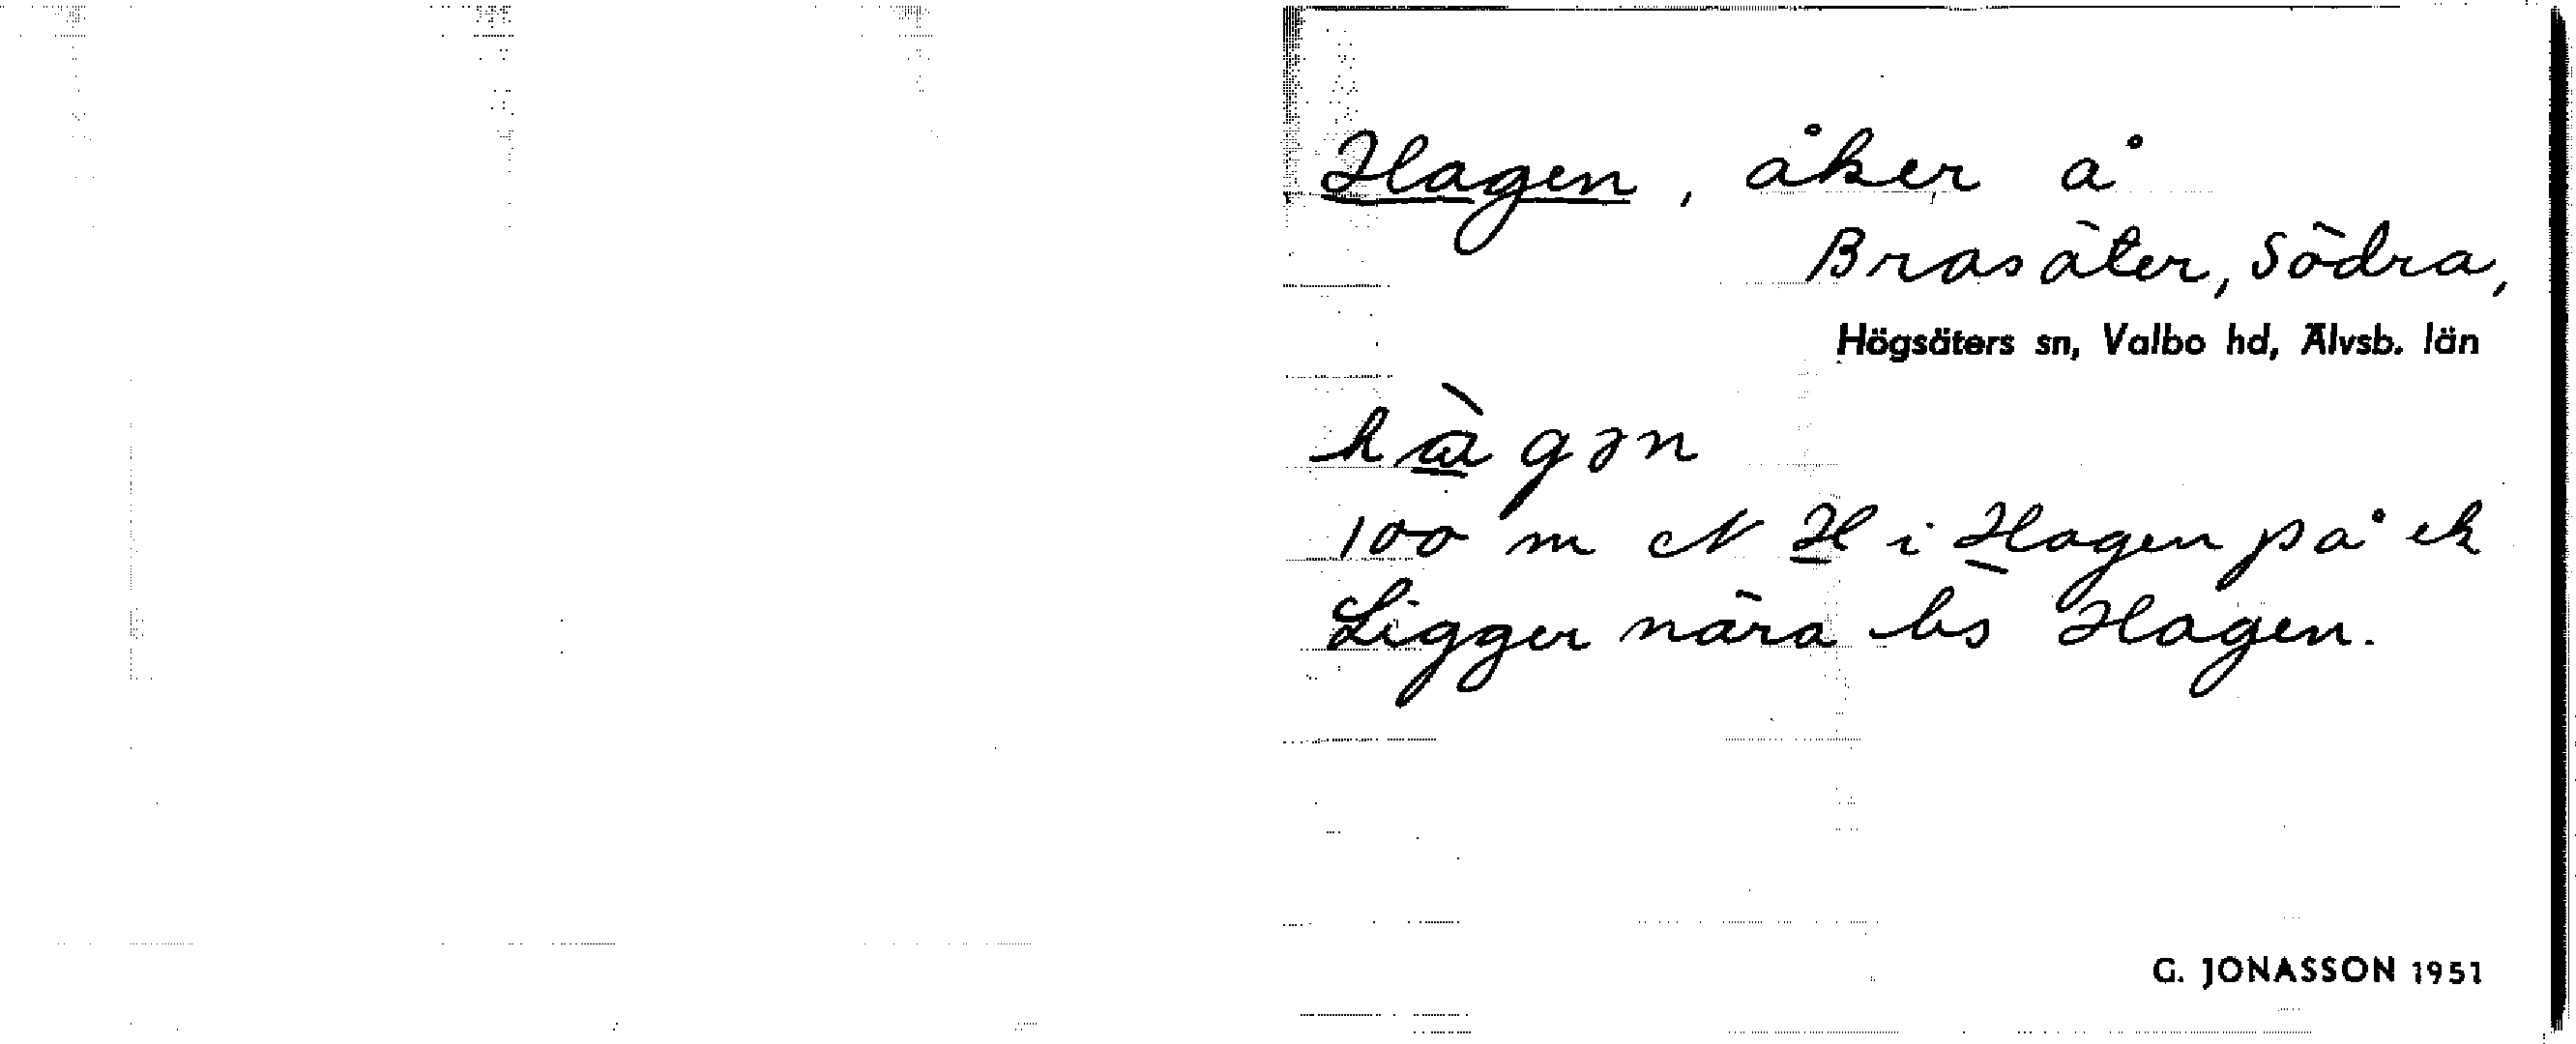 Hagen, åker å
Brasäter, Södra,
Högsäters sn, Valbo hd, Älvsb. län
hàgən
100 m N H i Hagen på ek
Ligger nära bs Hagen.
G. JONASSON 1951